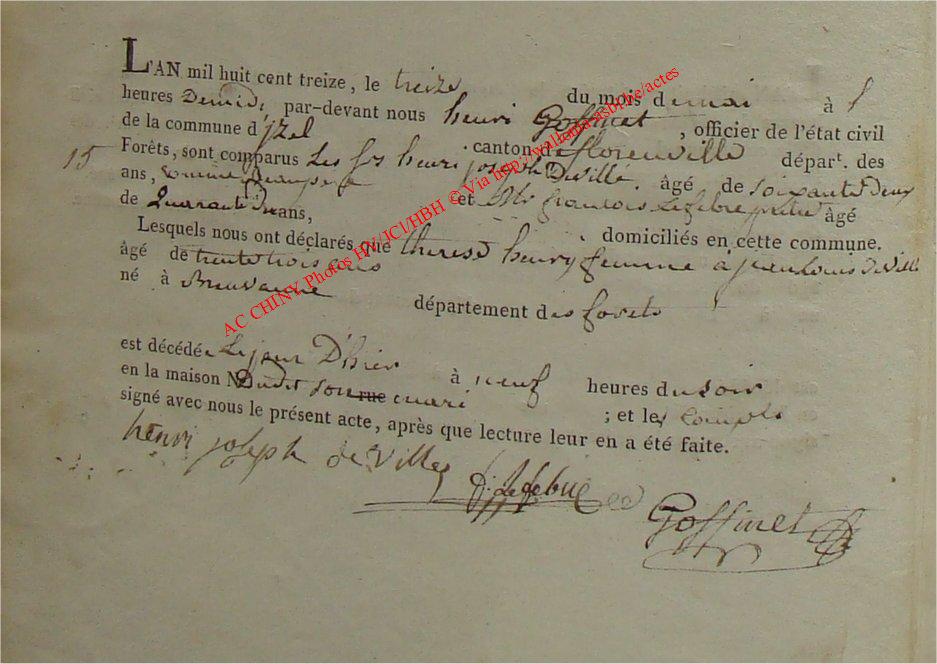 L'AN mil huit cent treize, le treize du mois de mai à
heures Demie, par-devant nous henri Goffinet, officier de l'état civil
de la commune d'jzel canton de florenville départ. des
15 Forêts, sont comparus Les Srs henri joseph Deville. âgé de soixante Deux
ans, et françois Lefebvre âgé
de Quarante ans,
domiciliés en cette commune.
Lesquels nous ont déclarés que therese henry femme à jean louis de Ville
âgé de trente trois ans
né à Breuvanne département des forets
est décédée Le jour D'hier à neuf heures du soir
en la maison N Dudit son rue mari ; et les comps
signé avec nous le présent acte, après que lecture leur en a été faite.
henri joseph de Ville
f: Lefebvre
Goffinet
AC CHINY Photos HV/JCI/HBH © Via http://wallonia.asbl.be/actes